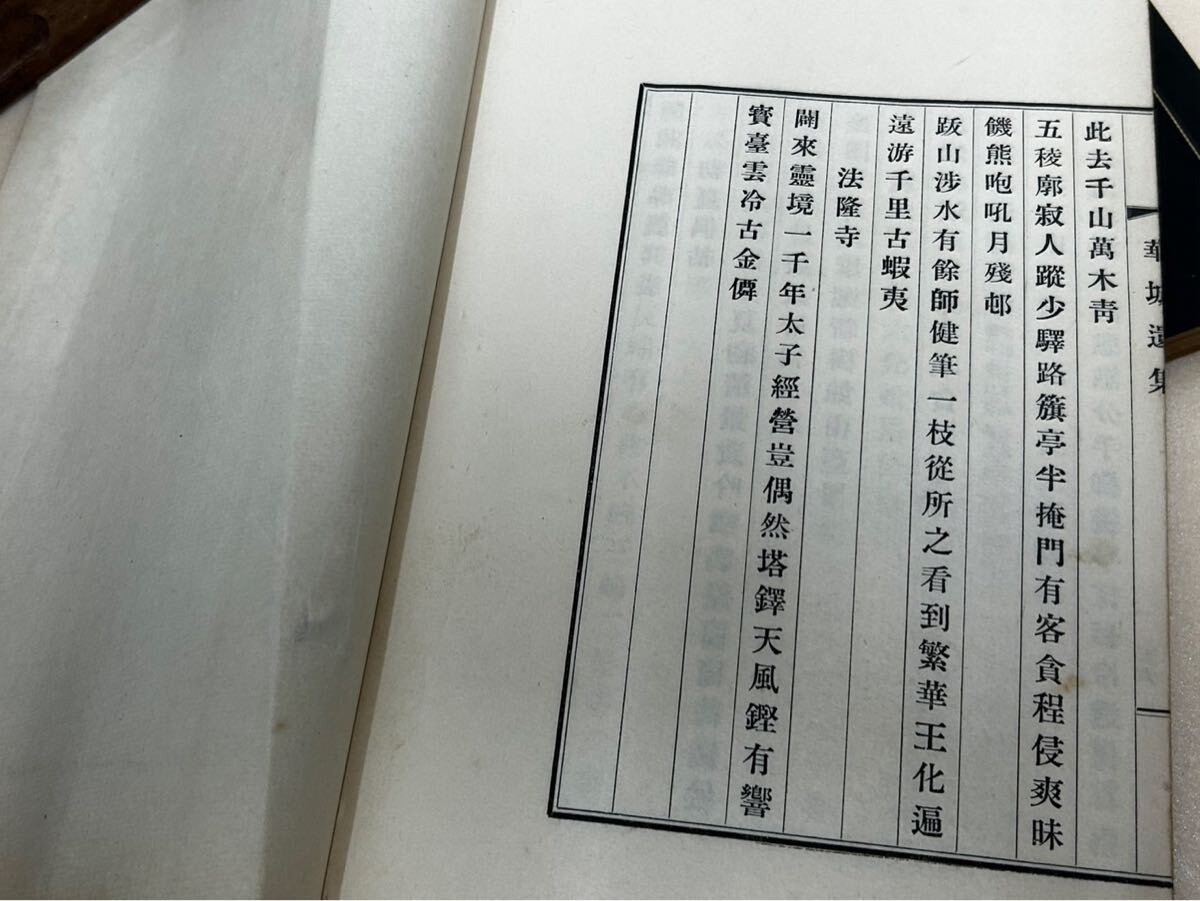 華城遺集
此去千山萬木青
五稜廓寂人蹤少驛路籏亭半掩門有客貪程侵爽昧
饑熊咆吼月殘邨
跋山涉水有餘師健筆一枝從所之看到繁華王化遍
遠游千里古蝦夷
法隆寺
闢來靈境一千年太子經營豈偶然塔鐸天風鏗有響
寶臺雲冷古金僊